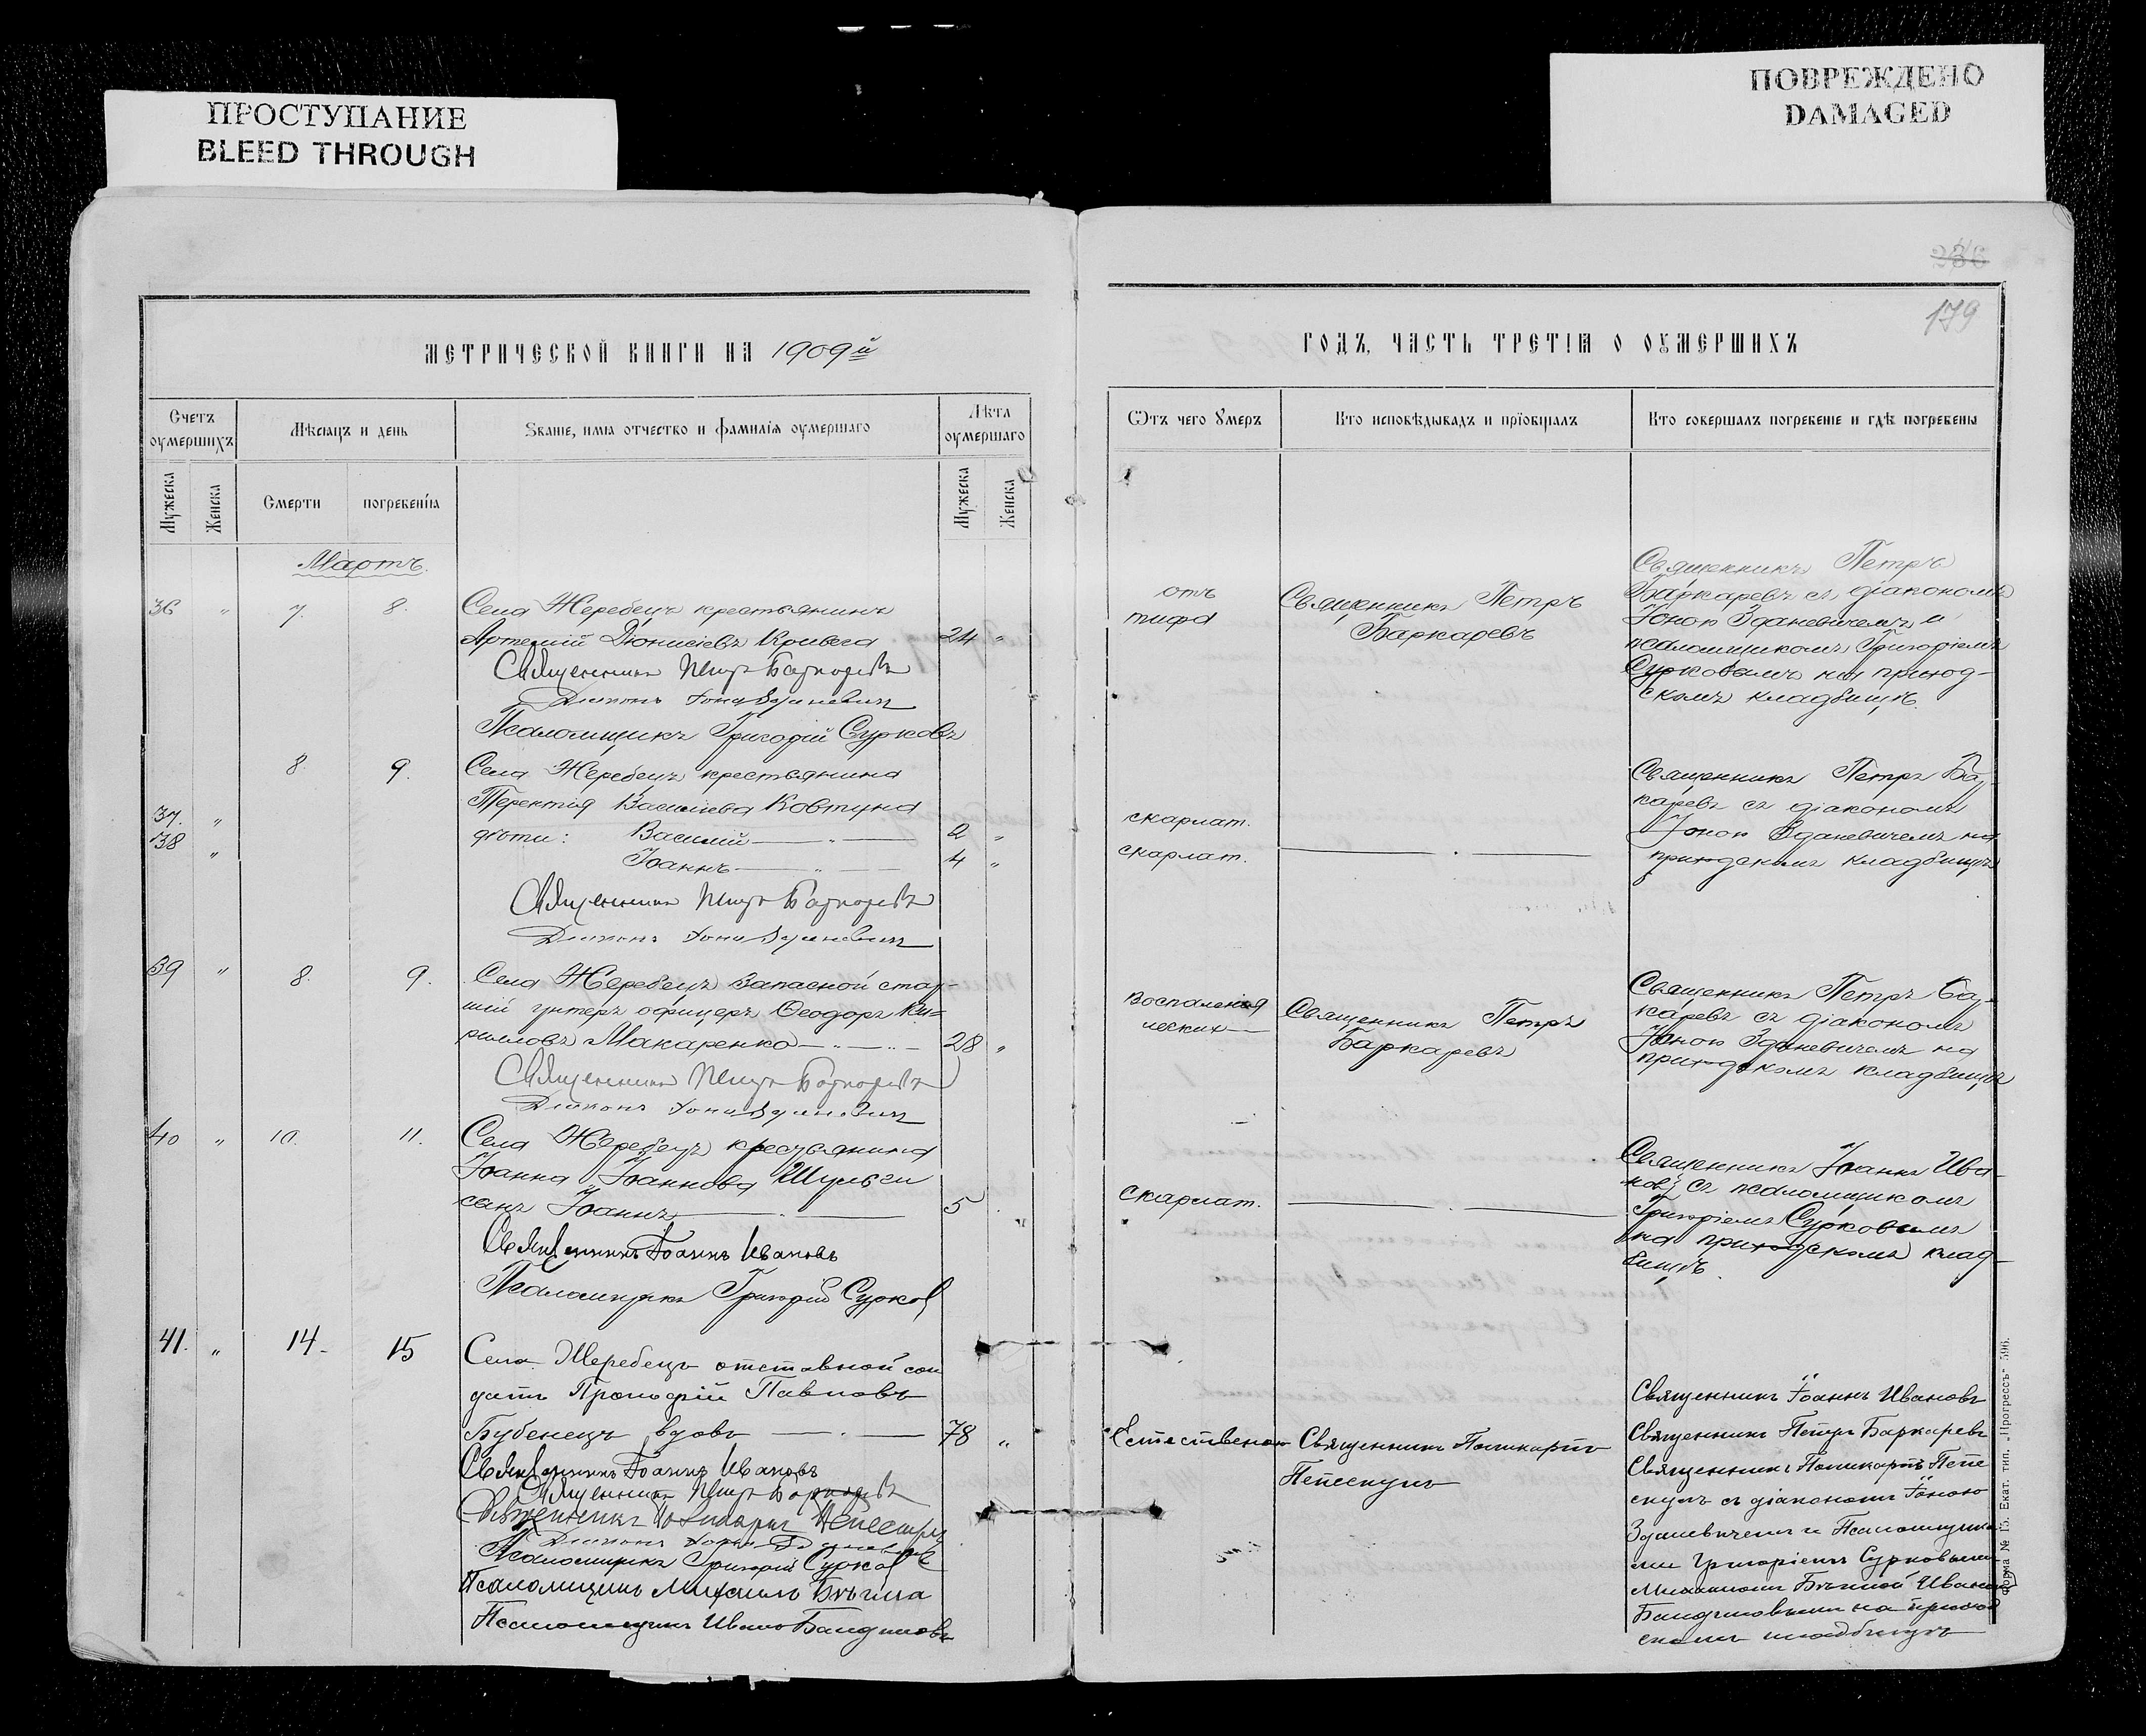 ПРОСТУПАНИЕ
BLEED THROUGH
ПОВРЕЖДЕНО
DAMAGED
236
179
МЕТРИЧЕСКОЙ КНИГИ НА 1909й
Счетъ оумершихъ
Мѣсяцъ и день
Званіе, имя отчество и фамилія оумершаго
Лѣта оумершаго
Мужеска
Женска
Смерти
погребенія
Мужеска
Женска
Мартъ.
36 " 7. 8. Села Жеребецъ крестьянинъ
Артемій Діонисіевъ Кривега 24 "
Священникъ Петръ Баркаревъ
Діаконъ Іона Зданевичъ
Псаломщикъ Григорій Сурковъ
8. 9. Села Жеребецъ крестьянина
Терентія Васильева Ковтуна
37. " дѣти: Василій 2 "
38 " Іоаннъ 4 "
Священникъ Петръ Баркаревъ
Діаконъ Іона Зданевичъ
39 " 8. 9. Села Жеребецъ запасной стар-
шій унтеръ офицеръ Ѳеодоръ Ки=
рилловъ Макаренко 28 "
Священникъ Петръ Баркаревъ
Діаконъ Іона Зданевичъ
40 " 10. 11. Села Жеребецъ крестьянина
Іоанна Іоаннова Шульги
сынъ Іоаннъ 5
Священникъ Іоаннъ Ивановъ
Псаломщикъ Григорій Сурков
41. " 14. 15 Села Жеребецъ отставной сол
датъ Прокофій Павловъ
Бубенецъ вдовъ 78 "
Священникъ Іоаннъ Ивановъ
Священникъ Петръ Баркаревъ
Священникъ Поликарпъ
Діаконъ Іона Зданевичъ
Псаломщикъ Григорій Сурков
Псаломщикъ Михаилъ
Псаломщикъ Иванъ
ГОДЪ, ЧАСТЬ ТРЕТІЯ О ОУМЕРШИХЪ
Ѿтъ чего Умеръ
Кто исповѣдывалъ и пріобщалъ
Кто совершалъ погребеніе и гдѣ погребены
отъ
тифа
Священникъ Петръ
Баркаревъ
Священникъ Петръ
Баркаревъ съ діакономъ
Іоною Зданевичемъ и
псаломщикомъ Григоріемъ
Сурковымъ на приход-
скомъ кладбищѣ.
скарлат.
скарлат.
Священникъ Петръ Бар-
каревъ съ діакономъ
Іоною Зданевичемъ на
приходскомъ кладбищѣ
воспаленія
легкихъ
Священникъ Петръ
Баркаревъ
Священникъ Петръ Бар-
каревъ съ діакономъ
Іоною Зданевичемъ на
приходскомъ кладбищѣ
скарлат.
Священникъ Іоаннъ Ива-
новъ съ псаломщикомъ
Григоріемъ Сурковымъ
на приходскомъ клад-
бищѣ.
Естественою
Священникъ Поликарпъ
Пепескулъ
Священникъ Іоаннъ Ивановъ
Священникъ Петръ Баркаревъ
Священникъ Поликарпъ Пепе
скулъ съ діакономъ Іоною
Зданевичемъ и Псаломщика
ми Григоріемъ Сурковымъ
Михаиломъ Иваномъ
на приход
скомъ кладбищѣ
Форма № 15. Екат. тип. „Прогрессъ" 596.